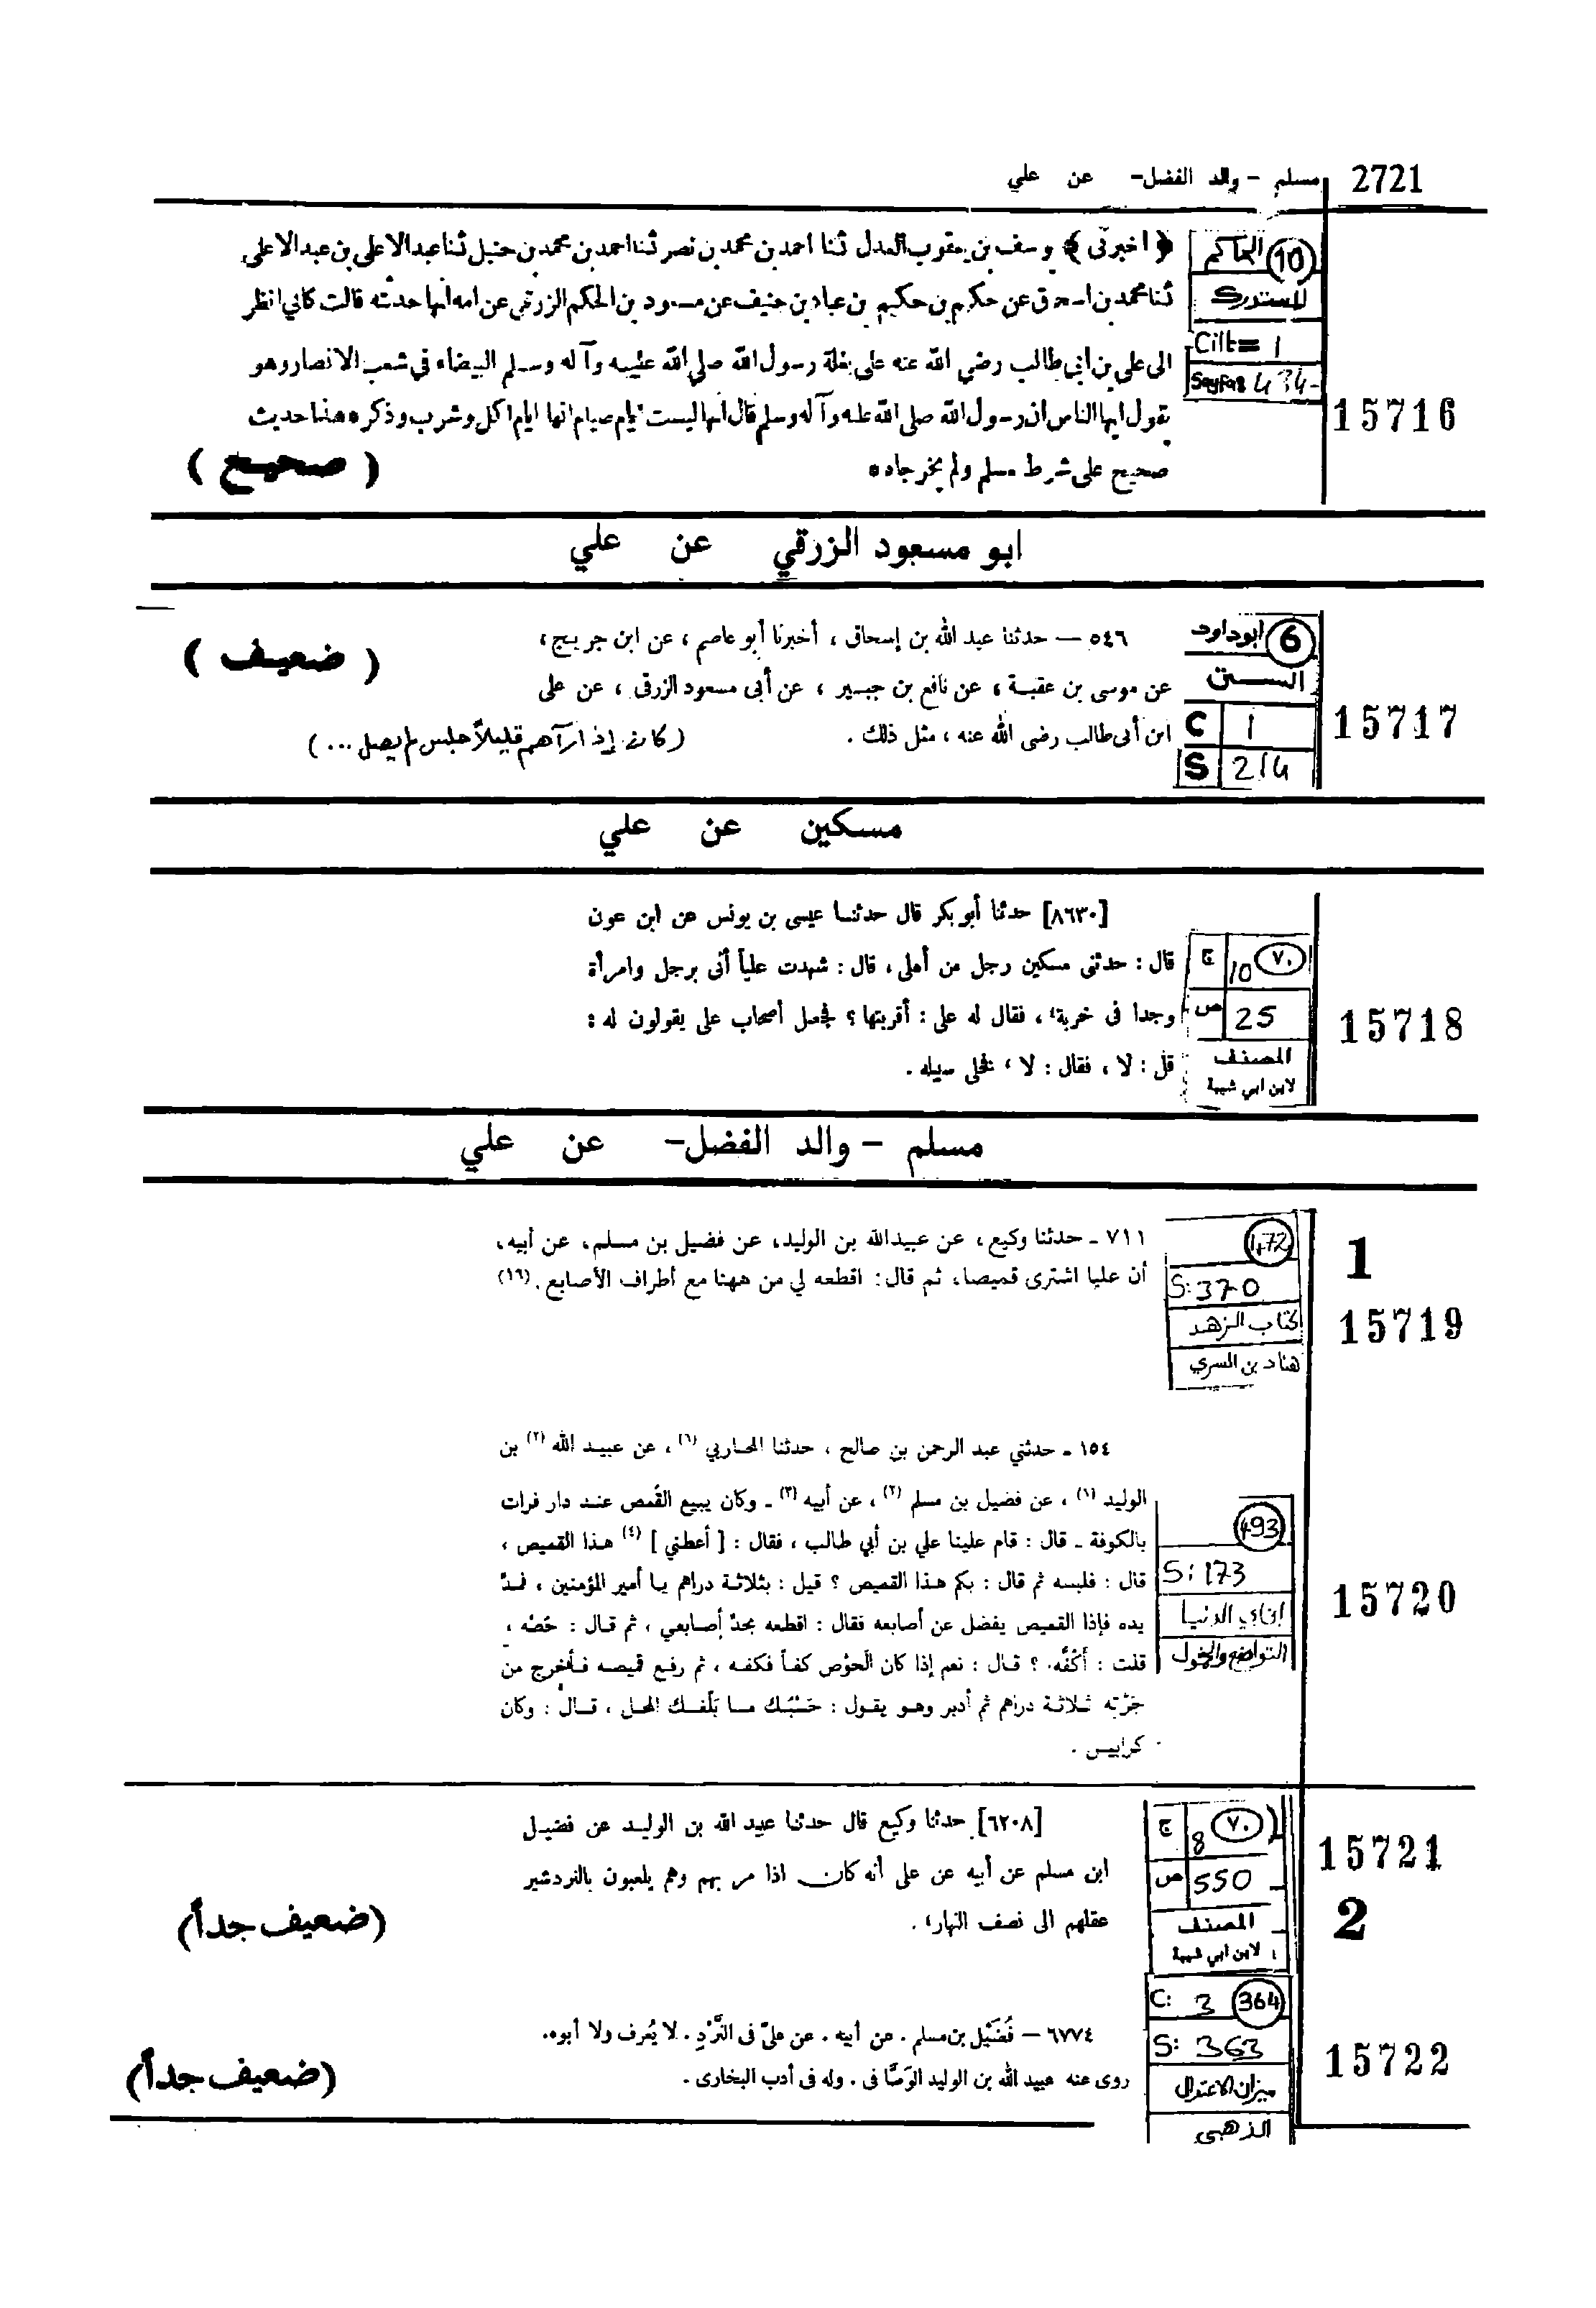 2721 مسلم - والد الفضل- عن علي
﴿ اخبرنى ﴾ وسف بن يعقوب العدل ثنا احمد بن محمد بن نصر ثنا احمد بن محمد بن حنبل ثنا عبد الاعلى بن عبد الاعلى
ثنا محمد بن اسحاق عن حكيم بن حكيم بن عباد بن حنيف عن مسعود بن الحكم الزرقي عن امه انها حدثته قالت كاني انظر
الى على بن ابي طالب رضي الله عنه على بغلة رسول الله صلى الله عليه وآله وسلم البيضاء في شعب الانصار وهو
يقول ايها الناس ان رسول الله صلى الله عليه وآله وسلم قال انها ليست ايام صيام انها ايام اكل وشرب وذكر * هذا حديث
صحيح على شرط مسلم ولم يخرجاه *
( صحيح )
10 الحاكم
المستدرك
Cilt= 1
Sayfa: 434-
15716
ابو مسعود الزرقي عن علي
٥٤٦ — حدثنا عبد الله بن إسحاق ، أخبرنا أبو عاصم ، عن ابن جريج ،
عن موسى بن عقبة ، عن نافع بن جبير ، عن أبى مسعود الزرقى ، عن على
ابن أبى طالب رضى الله عنه ، مثل ذلك .
(كان إذا رآهم قليلاً جلس لم يصل ...)
( ضعيف )
6 ابو داود
السنن
C 1
S 214
15717
مسكين عن علي
[٨٦٣٠] حدثنا أبو بكر قال حدثنا عيسى بن يونس عن ابن عون
قال : حدثنى مسكين رجل من أهلى ، قال : شهدت علياً أتى برجل وامرأة
وجدا فى خربة ، فقال له على : أقربتها ؟ فجعل أصحاب على يقولون له :
قل : لا ، فقال : لا ، فخلى سبيله .
٧٠ ج 10
ص 25
المصنف
لابن ابي شيبة
15718
مسلم - والد الفضل- عن علي
٧١١ ـ حدثنا وكيع، عن عبيدالله بن الوليد، عن فضيل بن مسلم، عن أبيه،
أن عليا اشترى قميصا، ثم قال: اقطعه لي من ههنا مع أطراف الأصابع. (١٦)
472
S: 370
كتاب الزهد
هناد بن السري
1
15719
١٥٤ ـ حدثني عبد الرحمن بن صالح ، حدثنا المحاربي (٦) ، عن عبيد الله (٢) بن
الوليد (١) ، عن فضيل بن مسلم (٢) ، عن أبيه (٣) ـ وكان يبيع القُمص عند دار فرات
بالكوفة ـ قال : قام علينا علي بن أبي طالب ، فقال : [ أعطني ] (٤) هذا القميص ،
قال : فلبسه ثم قال : بكم هذا القميص ؟ قيل : بثلاثة دراهم يا أمير المؤمنين ، فمدّ
يده فإذا القميص يفضل عن أصابعه فقال : اقطعه بحدّ أصابعي ، ثم قال : حُصْه ،
قلت : أكفّه ؟ قال : نعم إذا كان الحَوْص كفاً فكفه ، ثم رفع قميصه فأخرج من
حُزّته ثلاثة دراهم ثم أدبر وهو يقول : حَسْبُك ما بَلّغك المحل ، قال : وكان
كرابيس .
493
S: 173
ابن ابي الدنيا
التواضع والخمول
15720
[٦٢٠٨] حدثنا وكيع قال حدثنا عبيد الله بن الوليد عن فضيل
ابن مسلم عن أبيه عن على أنه كان اذا مر بهم وهم يلعبون بالنردشير
عقلهم الى نصف النهار .
(ضعيف جداً)
٧٠ ج 8
ص 550
المصنف
لابن ابي شيبة
15721
2
٦٧٧٤ — فُضَيْل بن مسلم . عن أبيه . عن علىّ فى النَّرْدِ . لا يُعرف ولا أبوه.
روى عنه عبيد الله بن الوليد الوَصَّافى . وله فى أدب البخارى .
(ضعيف جداً)
C: 3 364
S: 363
ميزان الاعتدال
الذهبي
15722